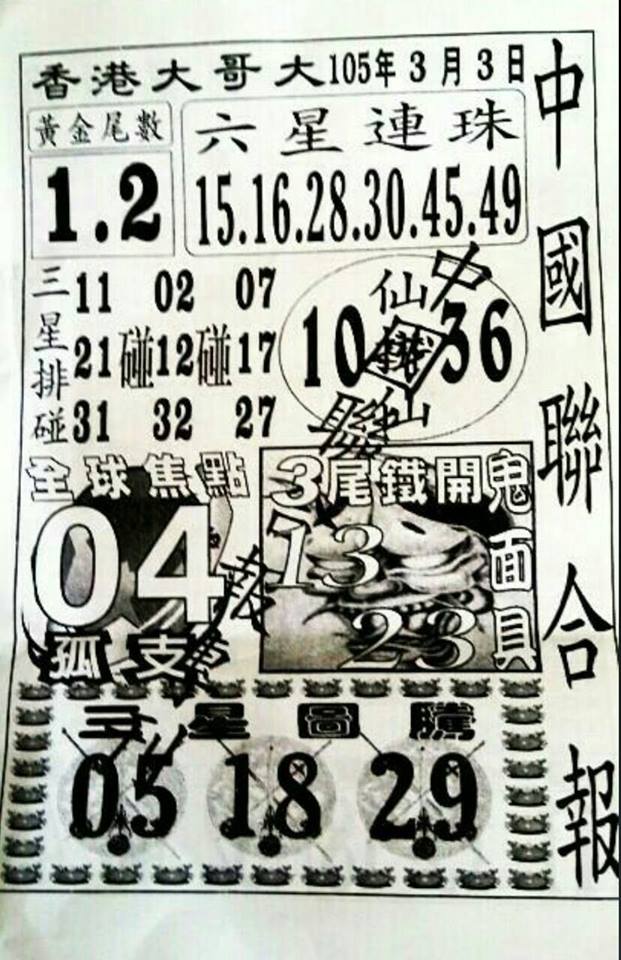 香港大哥大105年3月3日
中國聯合報
黃金尾數
1.2
六星連珠
15.16.28.30.45.49
三星排碰
11 02 07
21碰12碰17
31 32 27
仙
10 36
仙
中
聯
報
全球焦點
04
孤支
3尾鐵開
鬼面具
13
23
三星圖騰
05 18 29